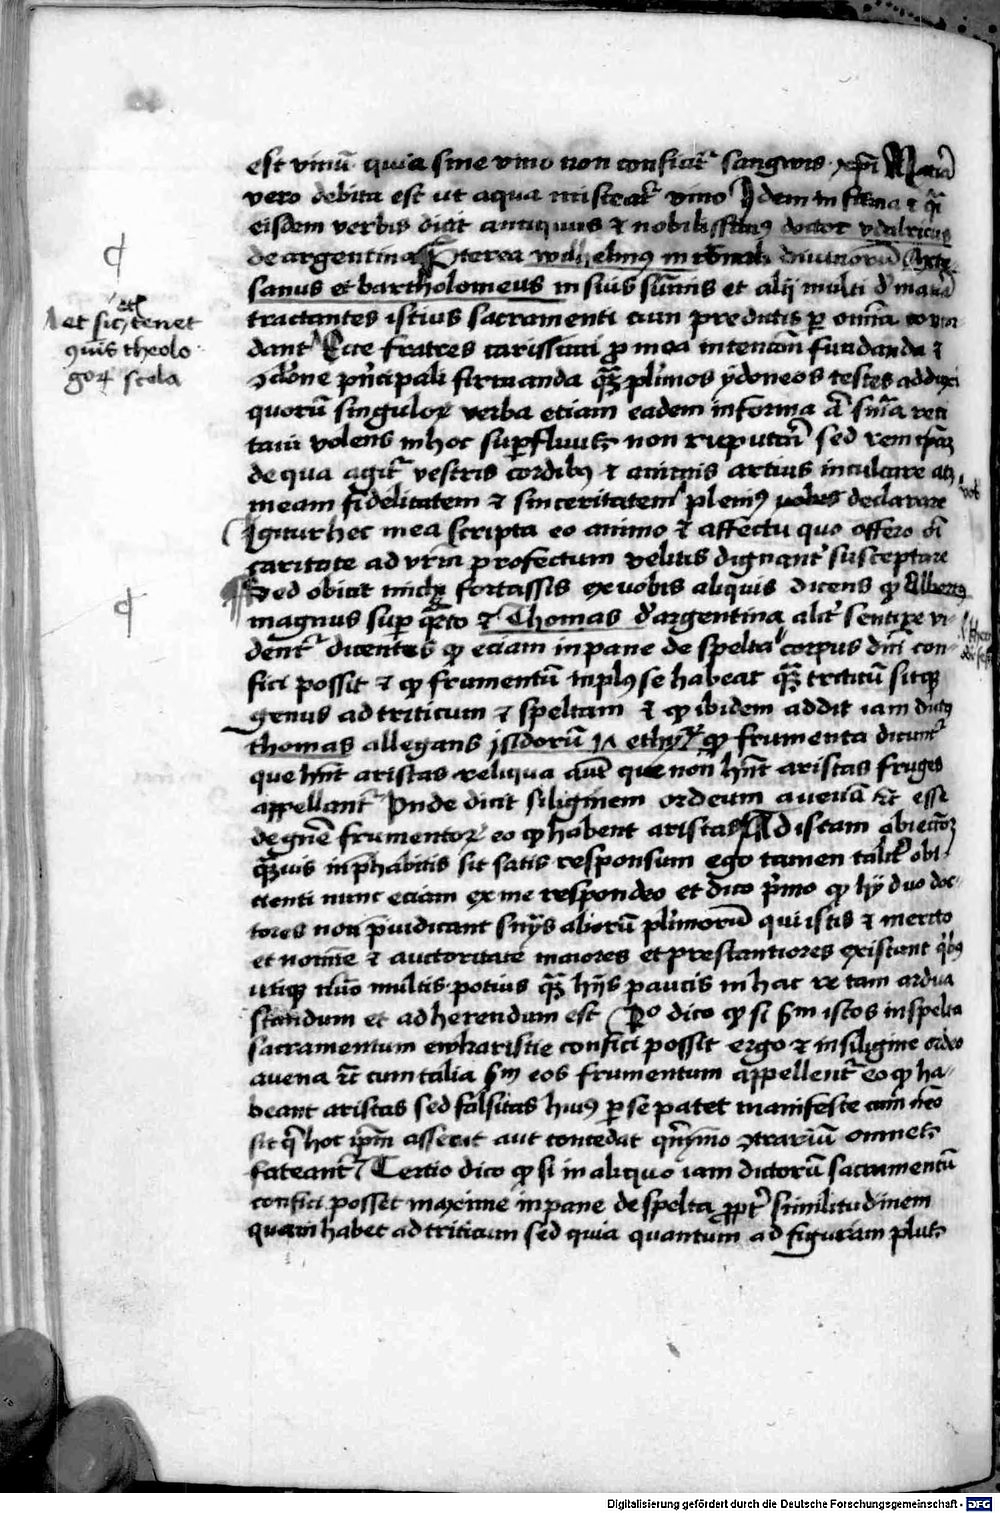 est vinū quia sine vino non conficitr̄ sangwis xp̄i Materia
vero debita est ut aqua misceatr̄ vino Idem in forma et
eisdem verbis dicit antiquus et nobilissimus doctor vdalricus
de argentina Preterea wilhelmus in rōnali divinorū
sanus et bartholomeus in suis sūmis et alij multi de materia
tractantes istius sacramenti cum predictis per omnia
dant Ecce fratres carissimi pro mea intencōne fundanda et
principali firmanda plimos ydoneos testes adduxi
quorū singulor̄ verba etiam eadem in forma
volens in hoc superfluus non reputari sed rem ipsam
de qua agitr̄ vestris cordibus et animis artius inculcare
meam fidelitatem et sinceritatem plenius vobis declarare
Igitur hec mea scripta eo animo et affectu quo offero
caritate ad vrm profectum velitis dignantr̄ susceptare
Sed obiciet michi fortassis ex vobis aliquis dicens qp Albertus
magnus super quarto et Thomas de argentina alitr̄ sentire vi
dentr̄ dicentes qp eciam in pane de spelta corpus dn̄i con
fici possit et qp frumentū in plus se habeat triticū sitqp
genus ad triticum et speltam et qp ibidem addit iam dictus
thomas allegans jsidorū in ethy qp frumenta dicuntr̄
que hn̄t aristas reliqua aut̄ que non hn̄t aristas fruges
appellantr̄ Unde dicit siliginem ordeum avenā esse
de gn̄e frumentor̄ eo qp habent aristas Ad istam obiectōem
in prehabitis sit satis responsum ego tamen talitr̄ obi
cienti nunc eciam ex me respondeo et dico p̄mo qp hij duo doc
tores non p̄iudicant sn̄ijs aliorū plimorū qui istis et merito
et nomine et auctoritate maiores et prestantiores existunt quibus
utiqp multis potius hijs paucis in hac re tam ardua
standum et adherendum est dico qp si sm̄ istos in spelta
sacramentum ewkaristie confici possit ergo et in siligine ordeo
avena cum talia sm̄ eos frumentum appellentr̄ eo qp ha
beant aristas sed falsitas huius per se patet manifeste cum nemo
sit q̄ hoc ipm̄ asserat aut concedat contrariū omnes
fateantr̄ Tertio dico qp si in aliquo iam dictorū sacramentū
confici posset maxime in pane de spelta similitudinem
quam habet ad triticum sed quia quantum ad figuram plus
et sic tenet
theolo
gor̄ scola
vob
Digitalisierung gefördert durch die Deutsche Forschungsgemeinschaft - DFG